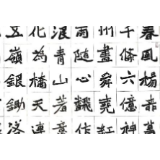 春風楊柳萬
千條六億神
州盡舜堯紅
雨隨心翻作
浪青山著意
化為橋天連
五嶺銀鋤落